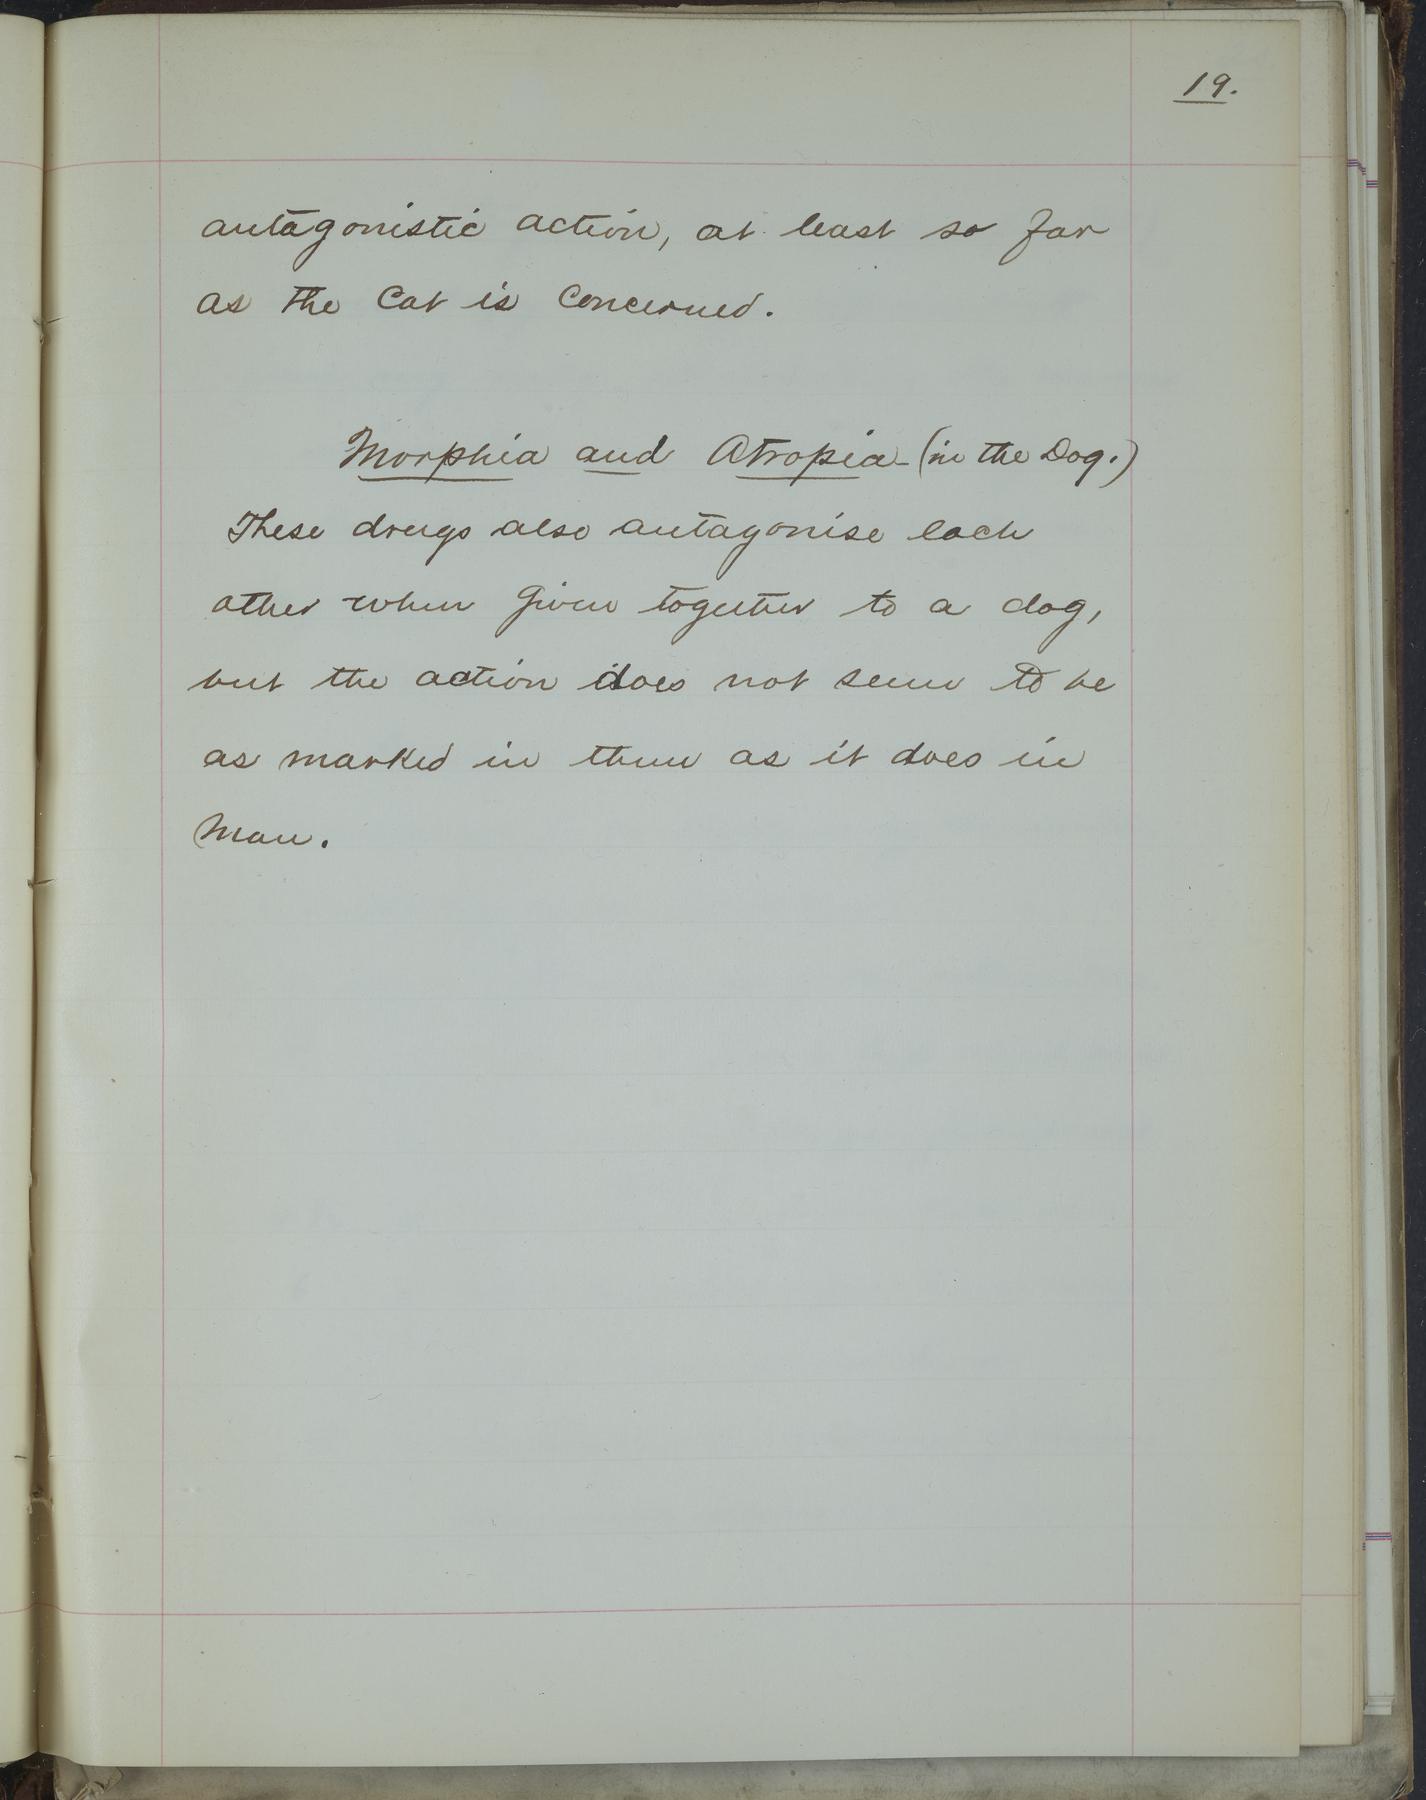 19.
antagonistic action, at least so far
as the Cat is Concerned.
Morphia and Atropia - (in the Dog.)
These drugs also antagonise each
other when given together to a dog,
but the action does not seem to be
as marked in them as it does in
Man.